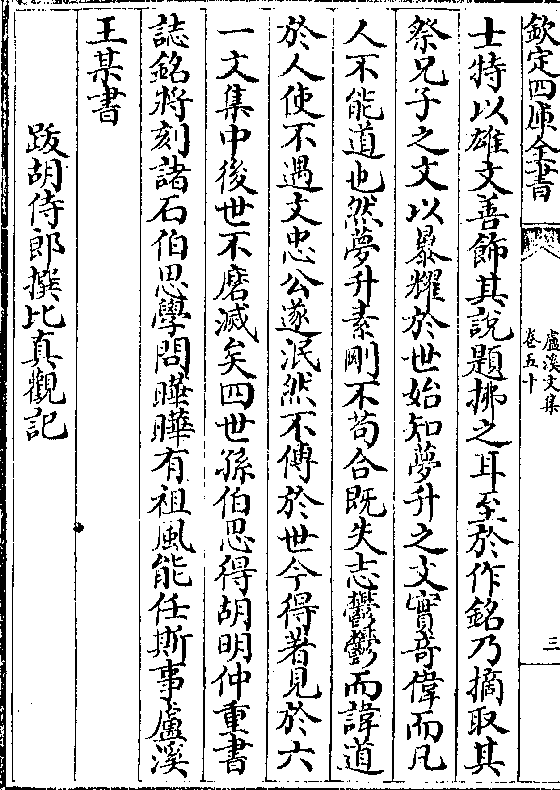 欽定四庫全書
盧溪文集
卷五十
三
士特以雄文善飾其說題拂之耳至於作銘乃摘取其
祭兄子之文以暴耀於世始知夢升之文實竒偉而凡
人不能道也然夢升素剛不苟合既失志鬱鬱而諱道
於人使不遇文忠公遂泯然不傳於世今得著見於六
一文集中後世不磨滅矣四世孫伯思得胡明仲重書
誌銘將刻諸石伯思學問曄曄有祖風能任斯事盧溪
王某書
跋胡侍郎撰比真觀記